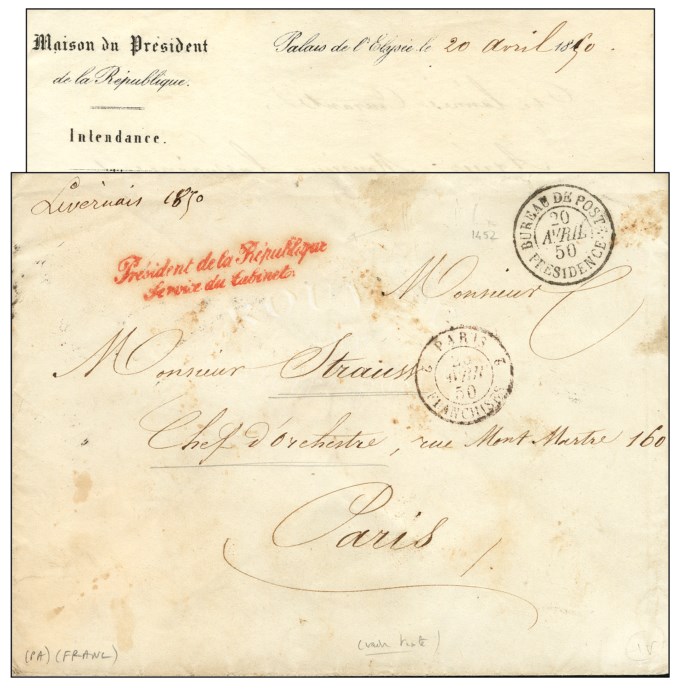 Maison du Président
de la République.
Intendance.
Palais de l'Elysée le 20 avril 1850.
Livernais 1850
Président de la République
Service du Cabinet
1452
BUREAU DE POSTE
20
AVRIL
50
PRÉSIDENCE
Monsieur
PARIS
2 2
AVRIL
50
FRANCHISES
Monsieur Strauss
Chef d'orchestre, rue Mont Martre 160
Paris
(PA) (FRANC)